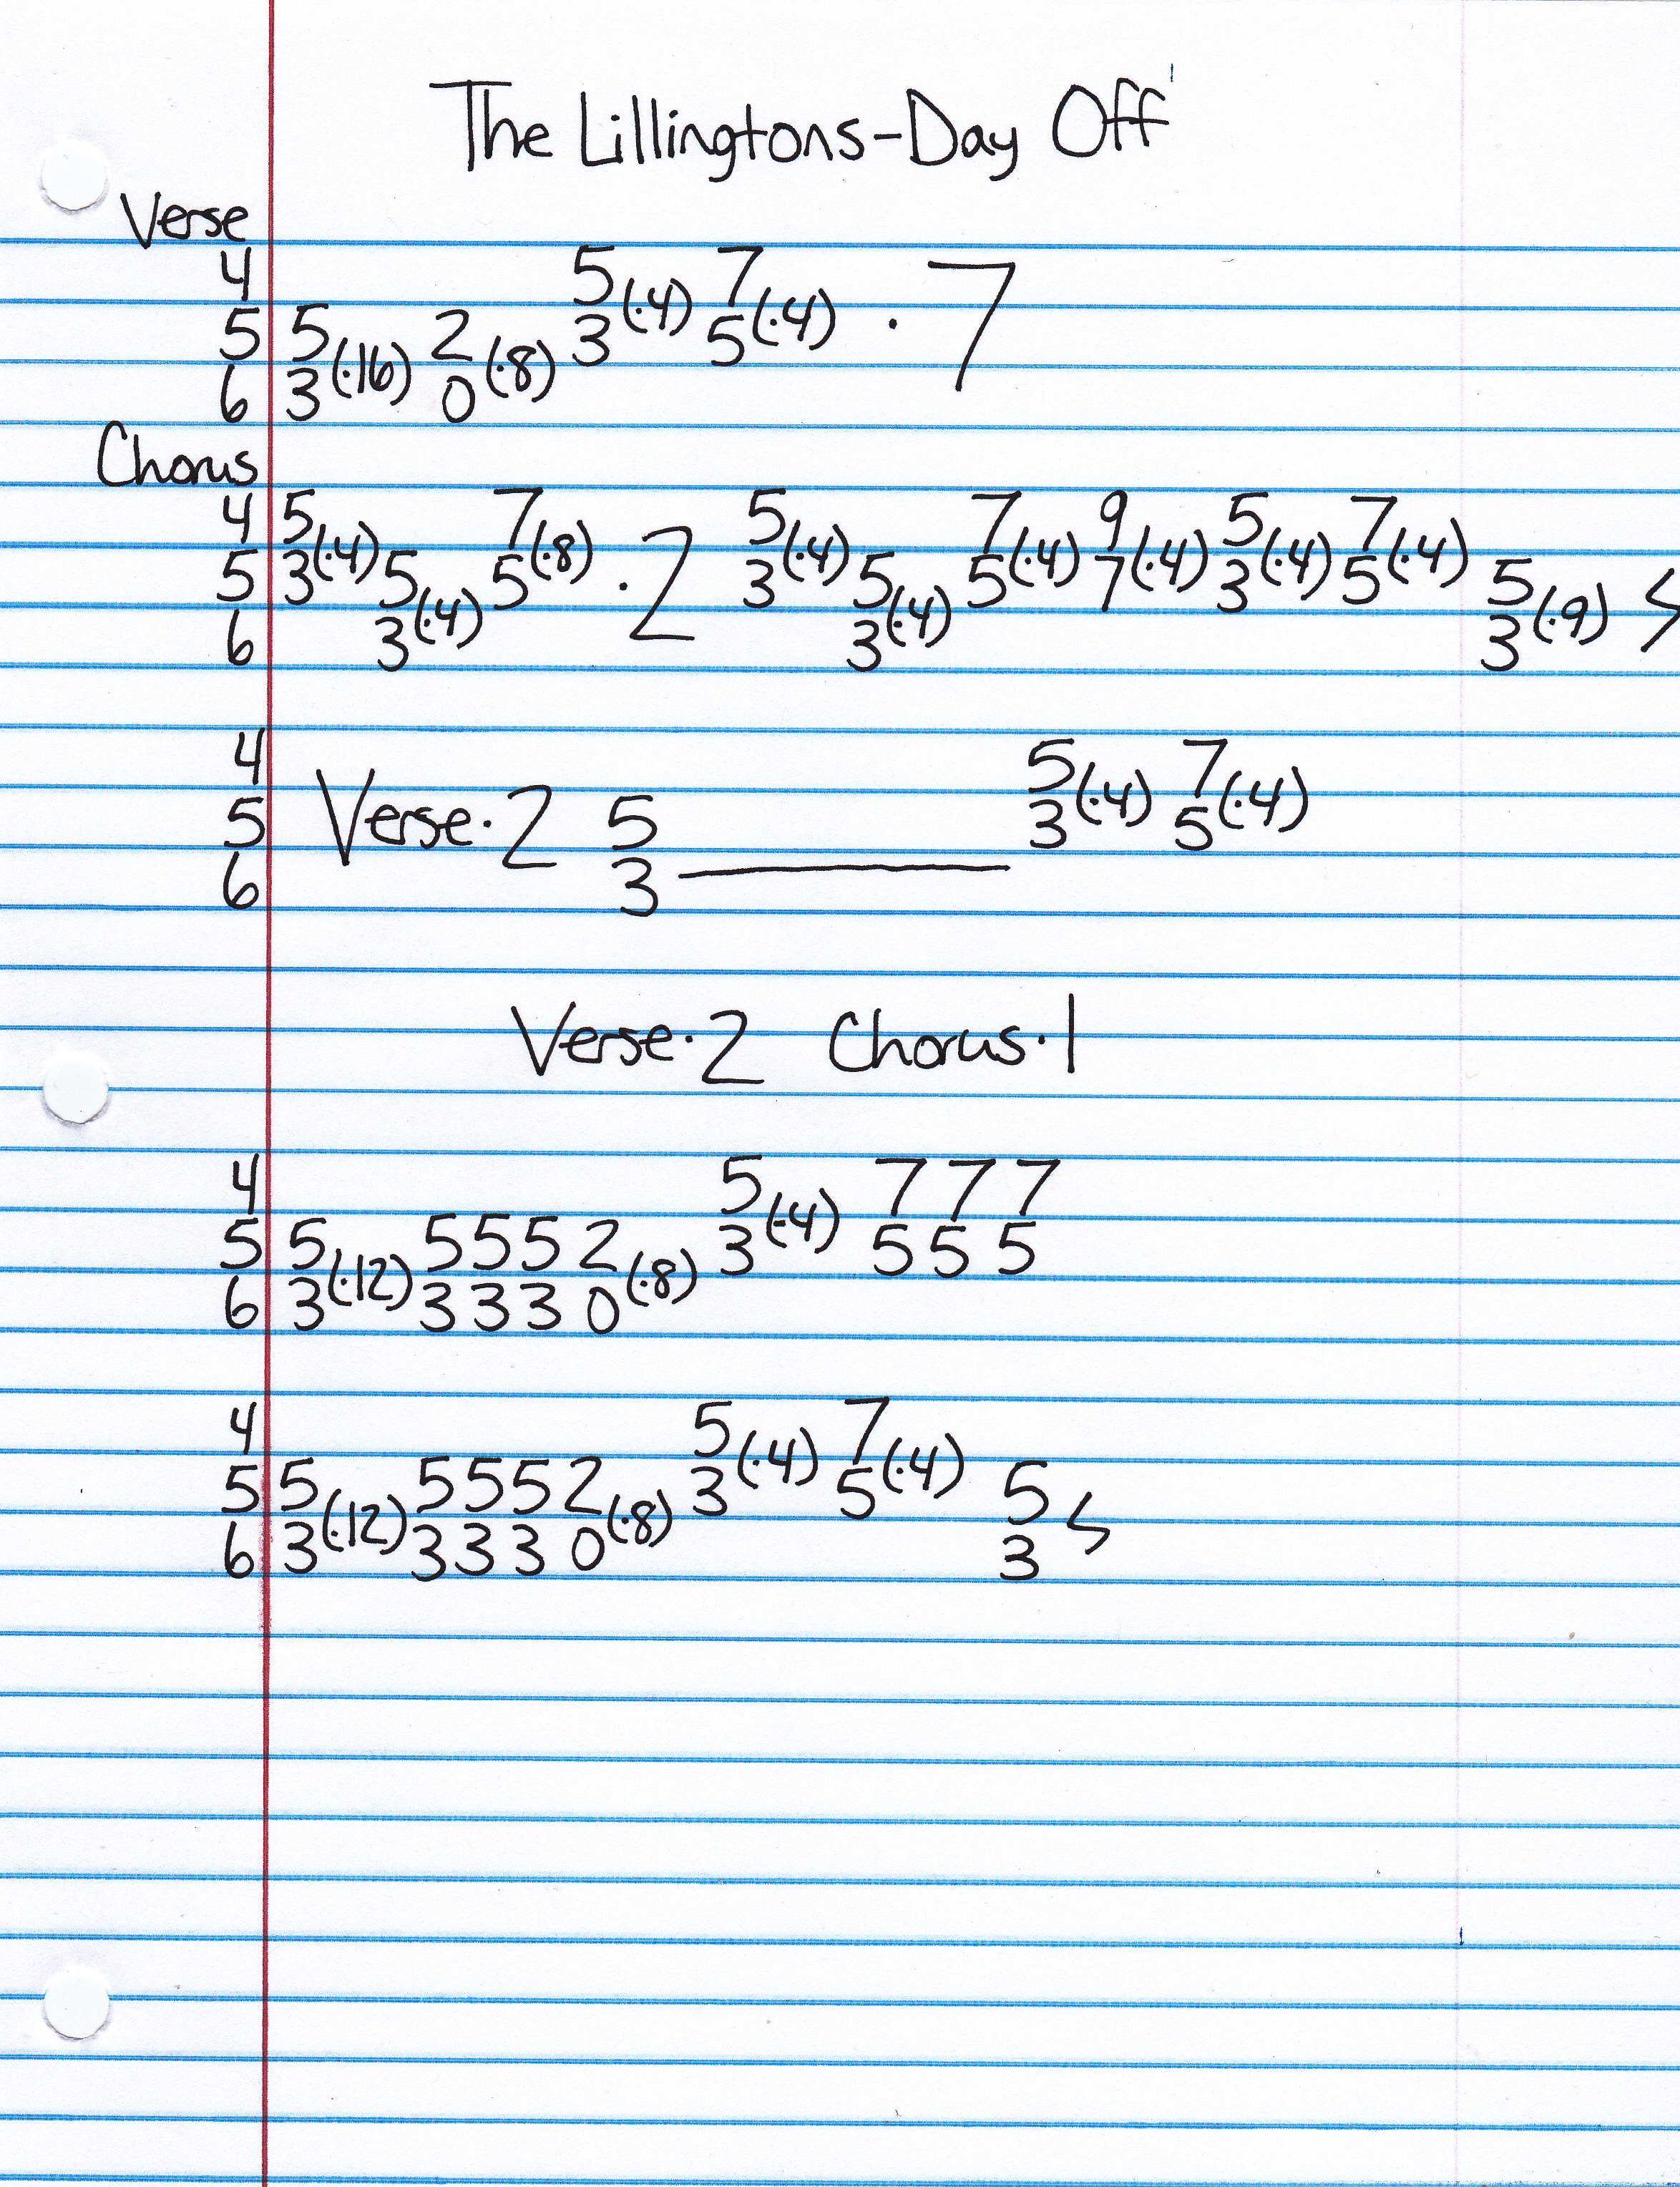 The Lillingtons-Day Off
Verse
4 5(·4) 7(·4) · 7
5 5(·16) 2(·8) 3 5
6 3 0
Chorus
4 5(·4) 7(·8) · 2 5(·4) 7(·4) 9(·4) 5(·4) 7(·4)
5 3 5(·4) 5 3 5(·4) 5 7 3 5 5(·9) ϟ
6 3 3 3
4 5(·4) 7(·4)
5 Verse·2 5 3 5
6 3
Verse·2 Chorus·1
4 5(·4) 7 7 7
5 5(·12) 5 5 5 2(·8) 3 5 5 5
6 3 3 3 3 0
4 5(·4) 7(·4)
5 5(·12) 5 5 5 2(·8) 3 5 5 ϟ
6 3 3 3 3 0 3